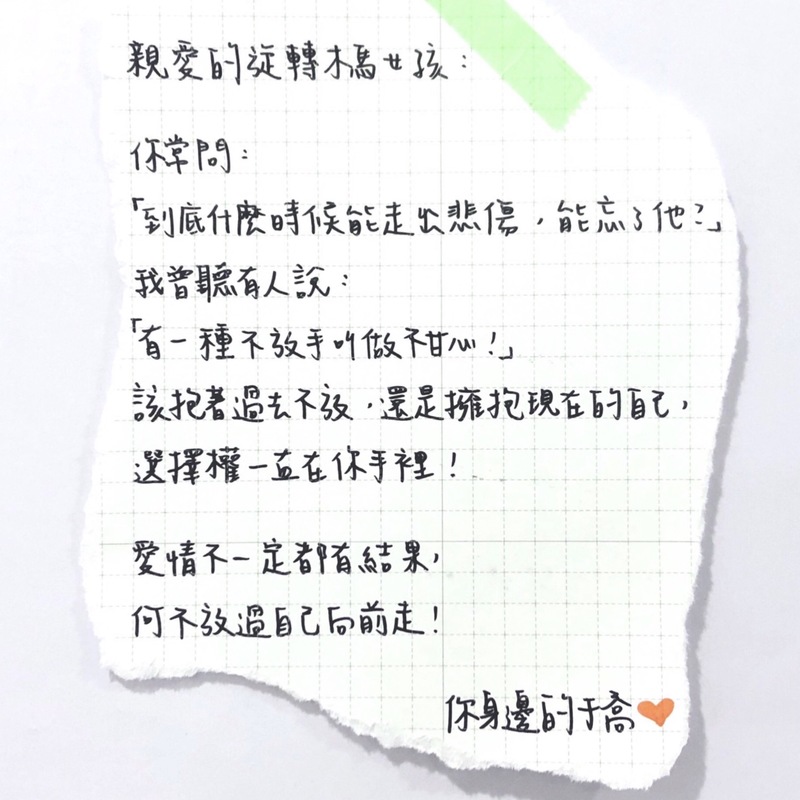 親愛的旋轉木馬女孩：
你常問：
「到底什麼時候能走出悲傷，能忘了他？」
我曾聽有人說：
「有一種不放手叫做不甘心！」
該抱著過去不放，還是擁抱現在的自己，
選擇權一直在你手裡！
愛情不一定都有結果，
何不放過自己向前走！
你身邊的于喬